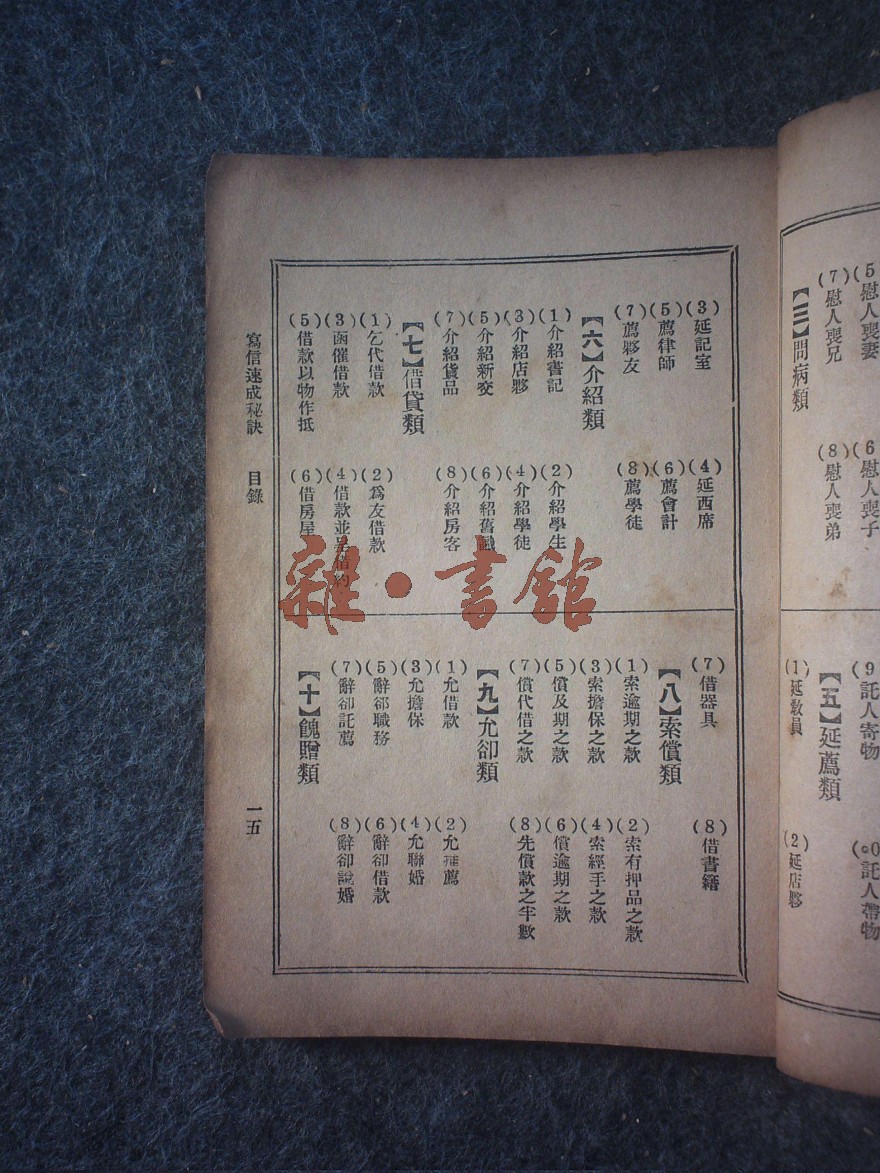 (5)慰人喪妻
(6)慰人喪子
(7)慰人喪兄
(8)慰人喪弟
【三】問病類
(9)託人寄物
託人帶物
【五】延薦類
(1)延教員
(2)延店夥
(3)延記室
(4)延西席
(5)薦律師
(6)薦會計
(7)薦夥友
(8)薦學徒
【六】介紹類
(1)介紹書記
(2)介紹學生
(3)介紹店夥
(4)介紹學徒
(5)介紹新交
(6)介紹舊識
(7)介紹貨品
(8)介紹房客
【七】借貸類
(1)乞代借款
(2)爲友借款
(3)函催借款
(4)借款並呈借約
(5)借款以物作抵
(6)借房屋
(7)借器具
(8)借書籍
【八】索償類
(1)索逾期之款
(2)索有押品之款
(3)索擔保之款
(4)索經手之款
(5)償及期之款
(6)償逾期之款
(7)償代借之款
(8)先償款之半數
【九】允卻類
(1)允借款
(2)允推薦
(3)允擔保
(4)允聯婚
(5)辭卻職務
(6)辭卻借款
(7)辭卻託薦
(8)辭卻說婚
【十】餽贈類
寫信速成秘訣 目錄
一五
雜·書館